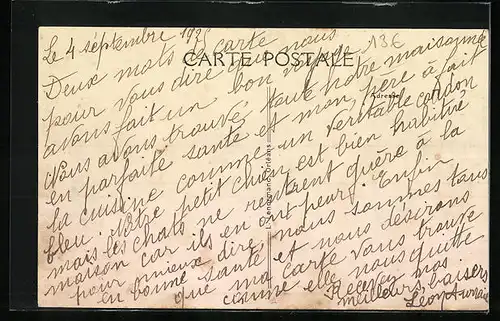 Le 4 septembre 192
13€
CARTE POSTALE
Adresse
Deux mots de carte
pour vous dire que nous
avons fait un bon voyage
Nous avons trouvé, toute notre maisonnée
en parfaite santé et mon père a fait
la cuisine comme un véritable cordon
bleu. Notre petit chien est bien habitué
mais les chats ne rentrent guère à la
maison car ils en ont peur. Enfin
pour mieux dire, nous sommes tous
en bonne santé et nous désirons
que ma carte vous trouve
comme elle nous quitte
Recevez nos
meilleurs baisers